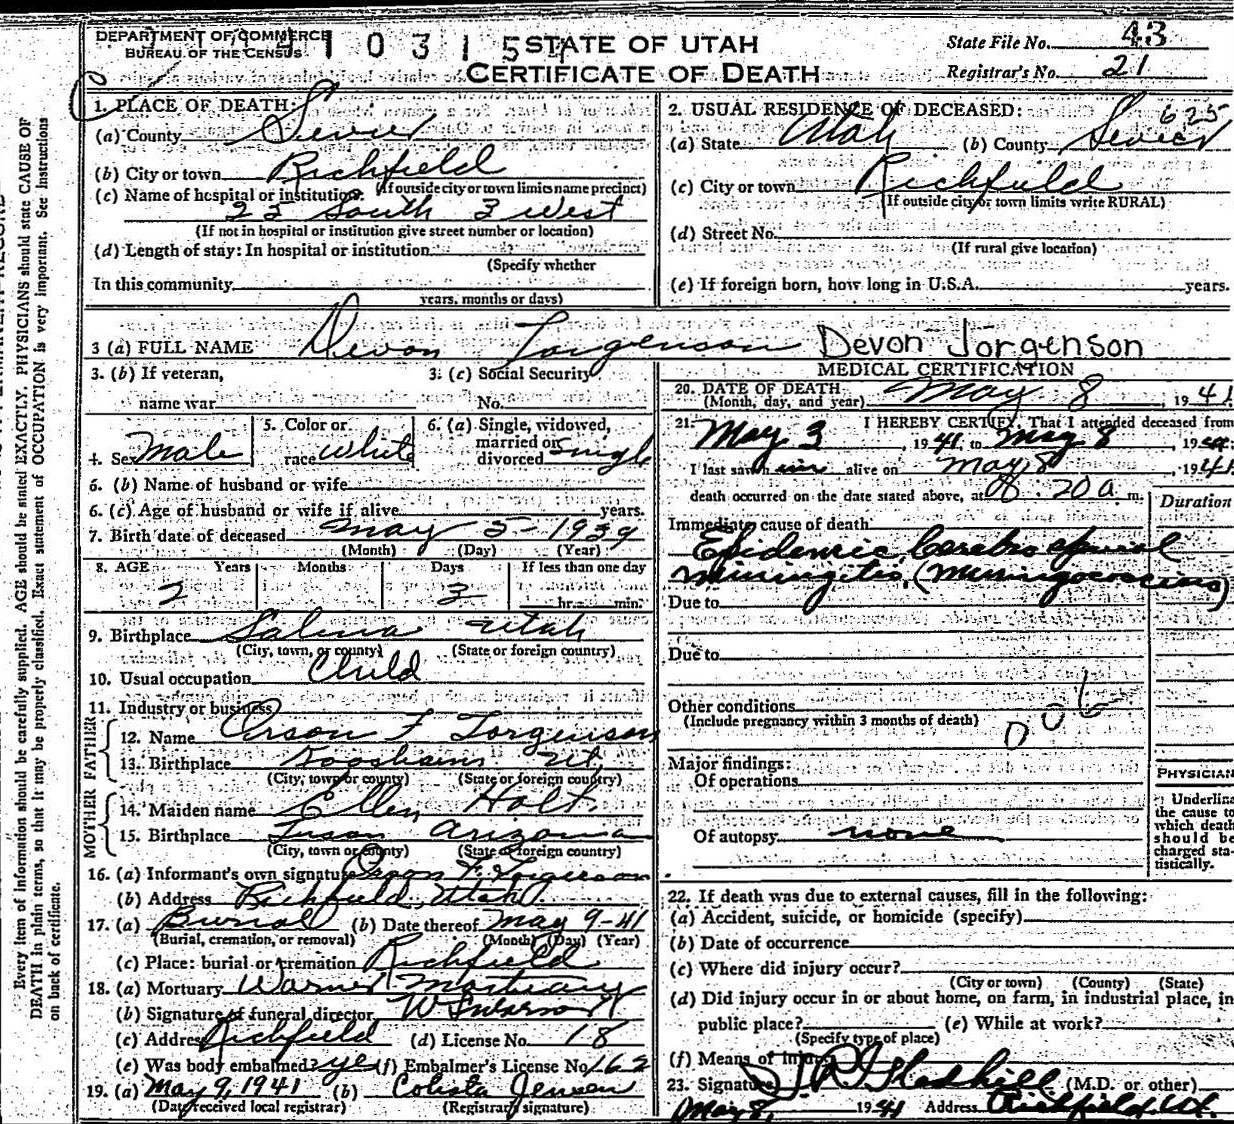 DEPARTMENT OF COMMERCE
BUREAU OF THE CENSUS
STATE OF UTAH
CERTIFICATE OF DEATH
State File No. 43
Registrar's No. 21
1. PLACE OF DEATH:
(a) County Sevier
(b) City or town Richfield
(If outside city or town limits name precinct)
(c) Name of hospital or institution:
South 3 West
(If not in hospital or institution give street number or location)
(d) Length of stay: In hospital or institution
(Specify whether
In this community
years, months or days)
2. USUAL RESIDENCE OF DECEASED: 625
(a) State Utah (b) County Sevier
(c) City or town Richfield
(If outside city or town limits write RURAL)
(d) Street No.
(If rural give location)
(e) If foreign born, how long in U.S.A. years.
3 (a) FULL NAME Devon Jorgenson Devon Jorgenson
3. (b) If veteran, name war
3. (c) Social Security No.
4. Sex Male
5. Color or race White
6. (a) Single, widowed, married or divorced Single
6. (b) Name of husband or wife
6. (c) Age of husband or wife if alive years.
7. Birth date of deceased May 5 - 1939
(Month) (Day) (Year)
8. AGE Years Months Days If less than one day
2 3 hr. min.
9. Birthplace Salina Utah
(City, town, or county) (State or foreign country)
10. Usual occupation Child
11. Industry or business
FATHER
12. Name Orson F Jorgenson
13. Birthplace Koosharem Ut.
(City, town or county) (State or foreign country)
MOTHER
14. Maiden name Ellen Holt
15. Birthplace Arizona
(City, town or county) (State or foreign country)
16. (a) Informant's own signature Orson F. Jorgenson
(b) Address Richfield, Utah.
17. (a) Burial (b) Date thereof May 9-41
(Burial, cremation, or removal) (Month) (Day) (Year)
(c) Place: burial or cremation Richfield
18. (a) Mortuary Mortuary
(b) Signature of funeral director
(c) Address Richfield (d) License No. 18
(e) Was body embalmed? yes (f) Embalmer's License No. 162
19. (a) May 9, 1941 (b) Jensen
(Date received local registrar) (Registrar's signature)
MEDICAL CERTIFICATION
20. DATE OF DEATH May 8, 1941
(Month, day, and year)
21. I HEREBY CERTIFY, That I attended deceased from
May 3, 1941 to May 8, 1941
I last saw him alive on May 8, 1941
death occurred on the date stated above, at 8:20 a m.
Duration
Immediate cause of death
Epidemic Cerebrospinal
Miningitis, (Meningococcious)
Due to
Due to
Other conditions
(Include pregnancy within 3 months of death)
Major findings:
Of operations
Of autopsy none
PHYSICIAN
Underline the cause to which death should be charged statistically.
22. If death was due to external causes, fill in the following:
(a) Accident, suicide, or homicide (specify)
(b) Date of occurrence
(c) Where did injury occur?
(City or town) (County) (State)
(d) Did injury occur in or about home, on farm, in industrial place, in
public place? (e) While at work?
(Specify type of place)
(f) Means of injury
23. Signature Gledhill (M.D. or other)
May 8, 1941 Address Richfield, Ut.
Every item of information should be carefully supplied. AGE should be stated EXACTLY. PHYSICIANS should state CAUSE OF
DEATH in plain terms, so that it may be properly classified. Exact statement of OCCUPATION is very important. See Instructions
on back of certificate.